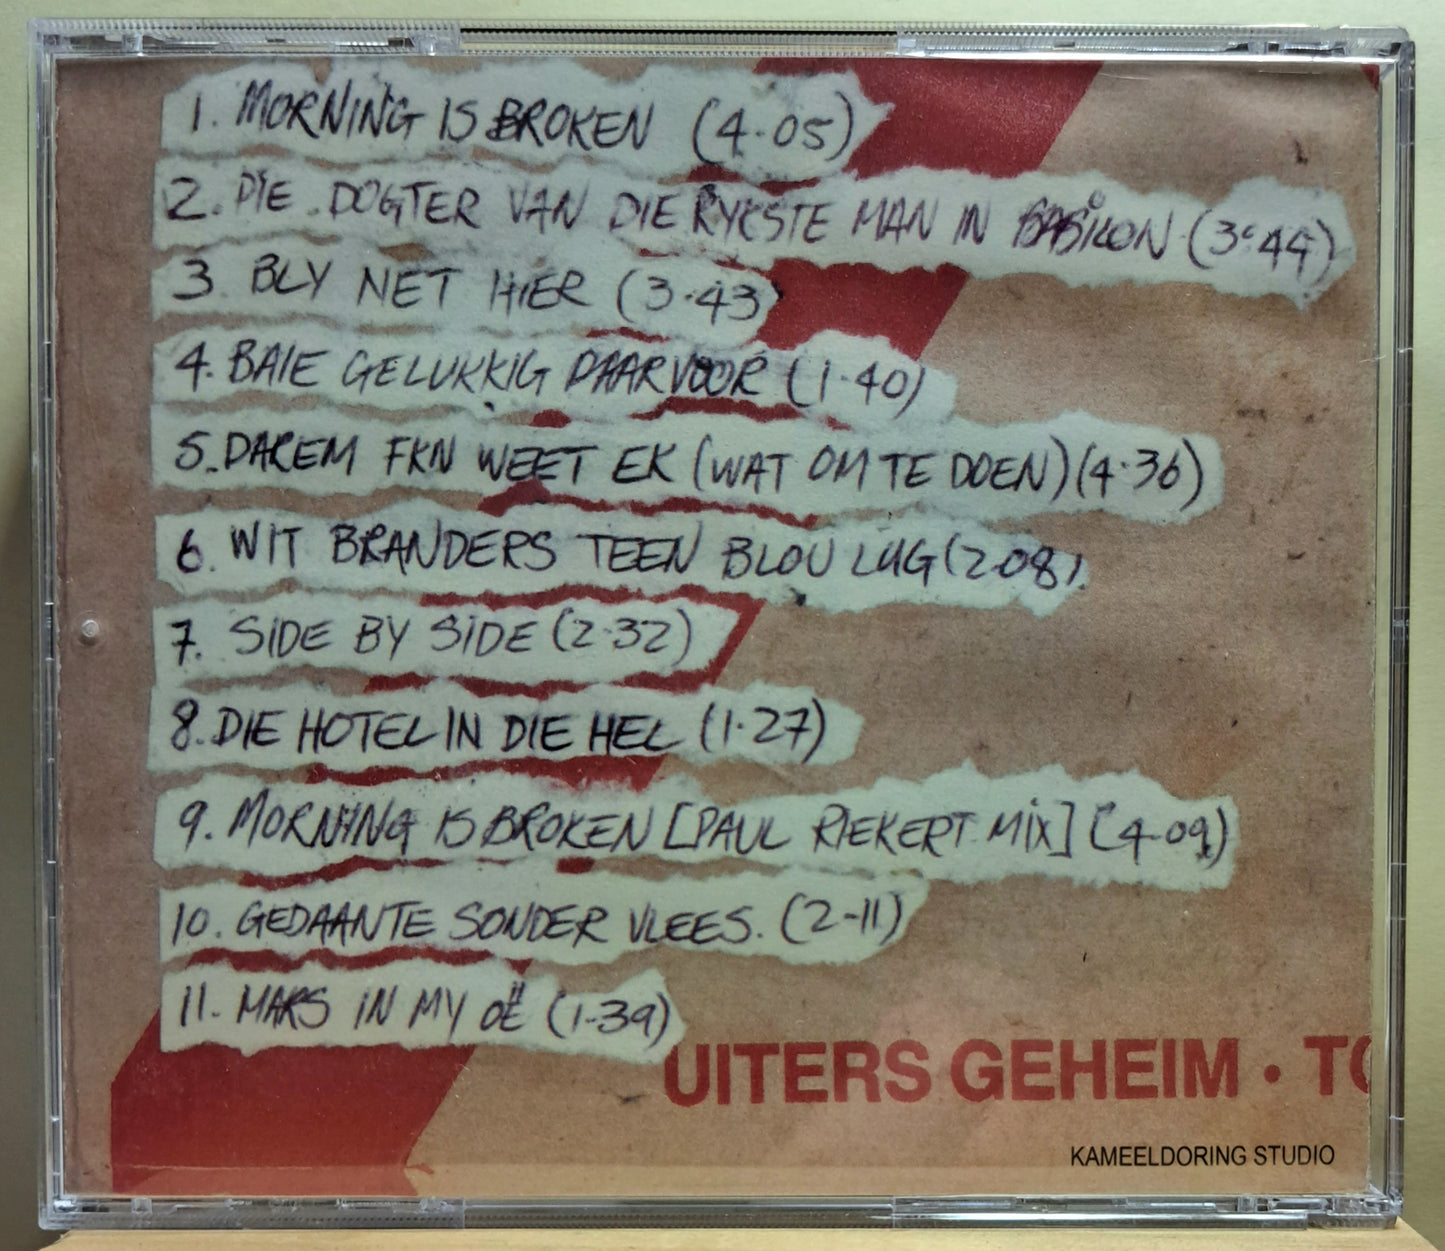 1. MORNING IS BROKEN (4.05)
2. DIE DOGTER VAN DIE RYKSTE MAN IN BABILON (3:44)
3. BLY NET HIER (3.43
4. BAIE GELUKKIG DAARVOOR (1.40)
5. DAREM FKN WEET EK (WAT OM TE DOEN) (4.36)
6. WIT BRANDERS TEEN BLOU LUG (2.08).
7. SIDE BY SIDE (2.32)
8. DIE HOTEL IN DIE HEL (1.27)
9. MORNING IS BROKEN [PAUL RIEKERT MIX] (4.09)
10. GEDAANTE SONDER VLEES. (2-11)
11. MARS IN MY OË (1.39)
UITERS GEHEIM • TO
KAMEELDORING STUDIO